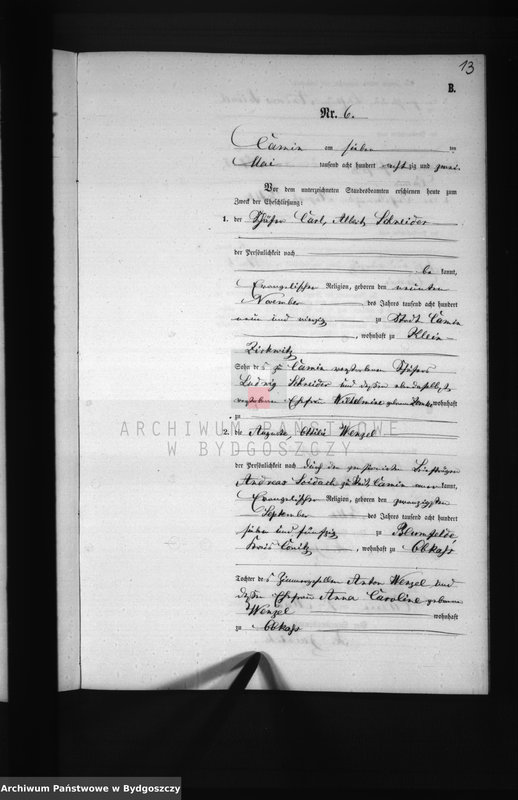 13
B.
Nr. 6.
Camin am sieben ten
Mai tausend acht hundert achtzig und zwei
Vor dem unterzeichneten Standesbeamten erschienen heute zum
Zweck der Eheschließung:
1. der Schäfer Carl, Albert Schneider
der Persönlichkeit nach
be kannt,
Evangelischer Religion, geboren den neunten
November des Jahres tausend acht hundert
neun und vierzig zu Stadt Camin
, wohnhaft zu Klein
Zirkwitz
Sohn des zu Camin verstorbenen Schäfers
Ludwig Schneider und dessen ebendaselbst
verstorbene Ehefrau Wilhelmine geborene wohnhaft
zu
ARCHIWUM PAŃSTWOWE
W BYDGOSZCZY
2. die Auguste, Ottilie Wenzel
der Persönlichkeit nach durch den
Andreas zu Stadt Camin anerkannt,
Evangelischer Religion, geboren den zwanzigsten
September des Jahres tausend acht hundert
sieben und fünfzig zu Blumfelde,
Kreis Conitz, wohnhaft zu Obkass
Tochter des Zimmergesellen Anton Wenzel und
dessen Ehefrau Anna Caroline geborene
Wenzel wohnhaft
zu Obkass
Archiwum Państwowe w Bydgoszczy